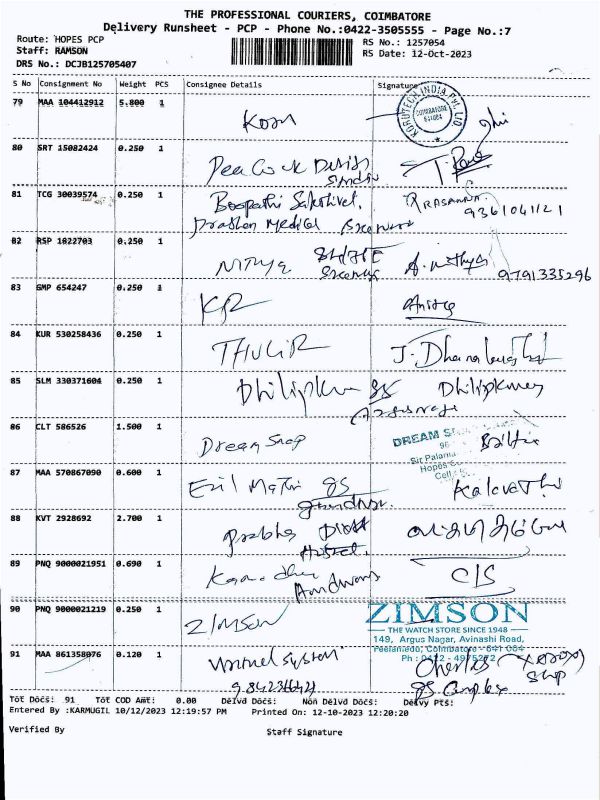 THE PROFESSIONAL COURIERS, COIMBATORE
Delivery Runsheet - PCP - Phone No.:0422-3505555 - Page No.:7
Route: HOPES PCP
Staff: RAMSON
DRS No.: DCJB125705407
RS No.: 1257054
RS Date: 12-Oct-2023
S No Consignment No Weight PCS Consignee Details Signature
79 MAA 104412912 5.800 1
KURUTECH INDIA Pvt. LTD COIMBATORE 641004
80 SRT 15082424 0.250 1
Peacock Design
81 TCG 30039574 0.250 1 Boopathi Sakthivel, PRASANNA
Prathan Medical 9361041121
82 RSP 1022703 0.250 1 Nithya A. Nithya
9791335296
83 GMP 654247 0.250 1 KR
84 KUR 530258436 0.250 1 THULIR
85 SLM 330371604 0.250 1 Dhilipkumar Dhilipkumar
86 CLT 586526 1.500 1 Dream Shop
DREAM
Sir Palamu
Hopes
Cell
87 MAA 570867090 0.600 1 Ezil Mathi Kalavathi
88 KVT 2928692 2.700 1 Prabha
Hostel.
89 PNQ 9000021951 0.690 1
90 PNQ 9000021219 0.250 1 ZIMSON
ZIMSON
THE WATCH STORE SINCE 1948
149, Argus Nagar, Avinashi Road,
Peelamedu, Coimbatore - 641 004
Ph : 0422 - 4975272
91 MAA 861358076 0.120 1 System Charles (Xerox)
Shop
GS Complex
Tot Docs: 91 Tot COD Amt: 0.00 Delvd Docs: Non Delvd Docs: Delvy Pts:
Entered By :KARMUGIL 10/12/2023 12:19:57 PM Printed On: 12-10-2023 12:20:20
Verified By Staff Signature